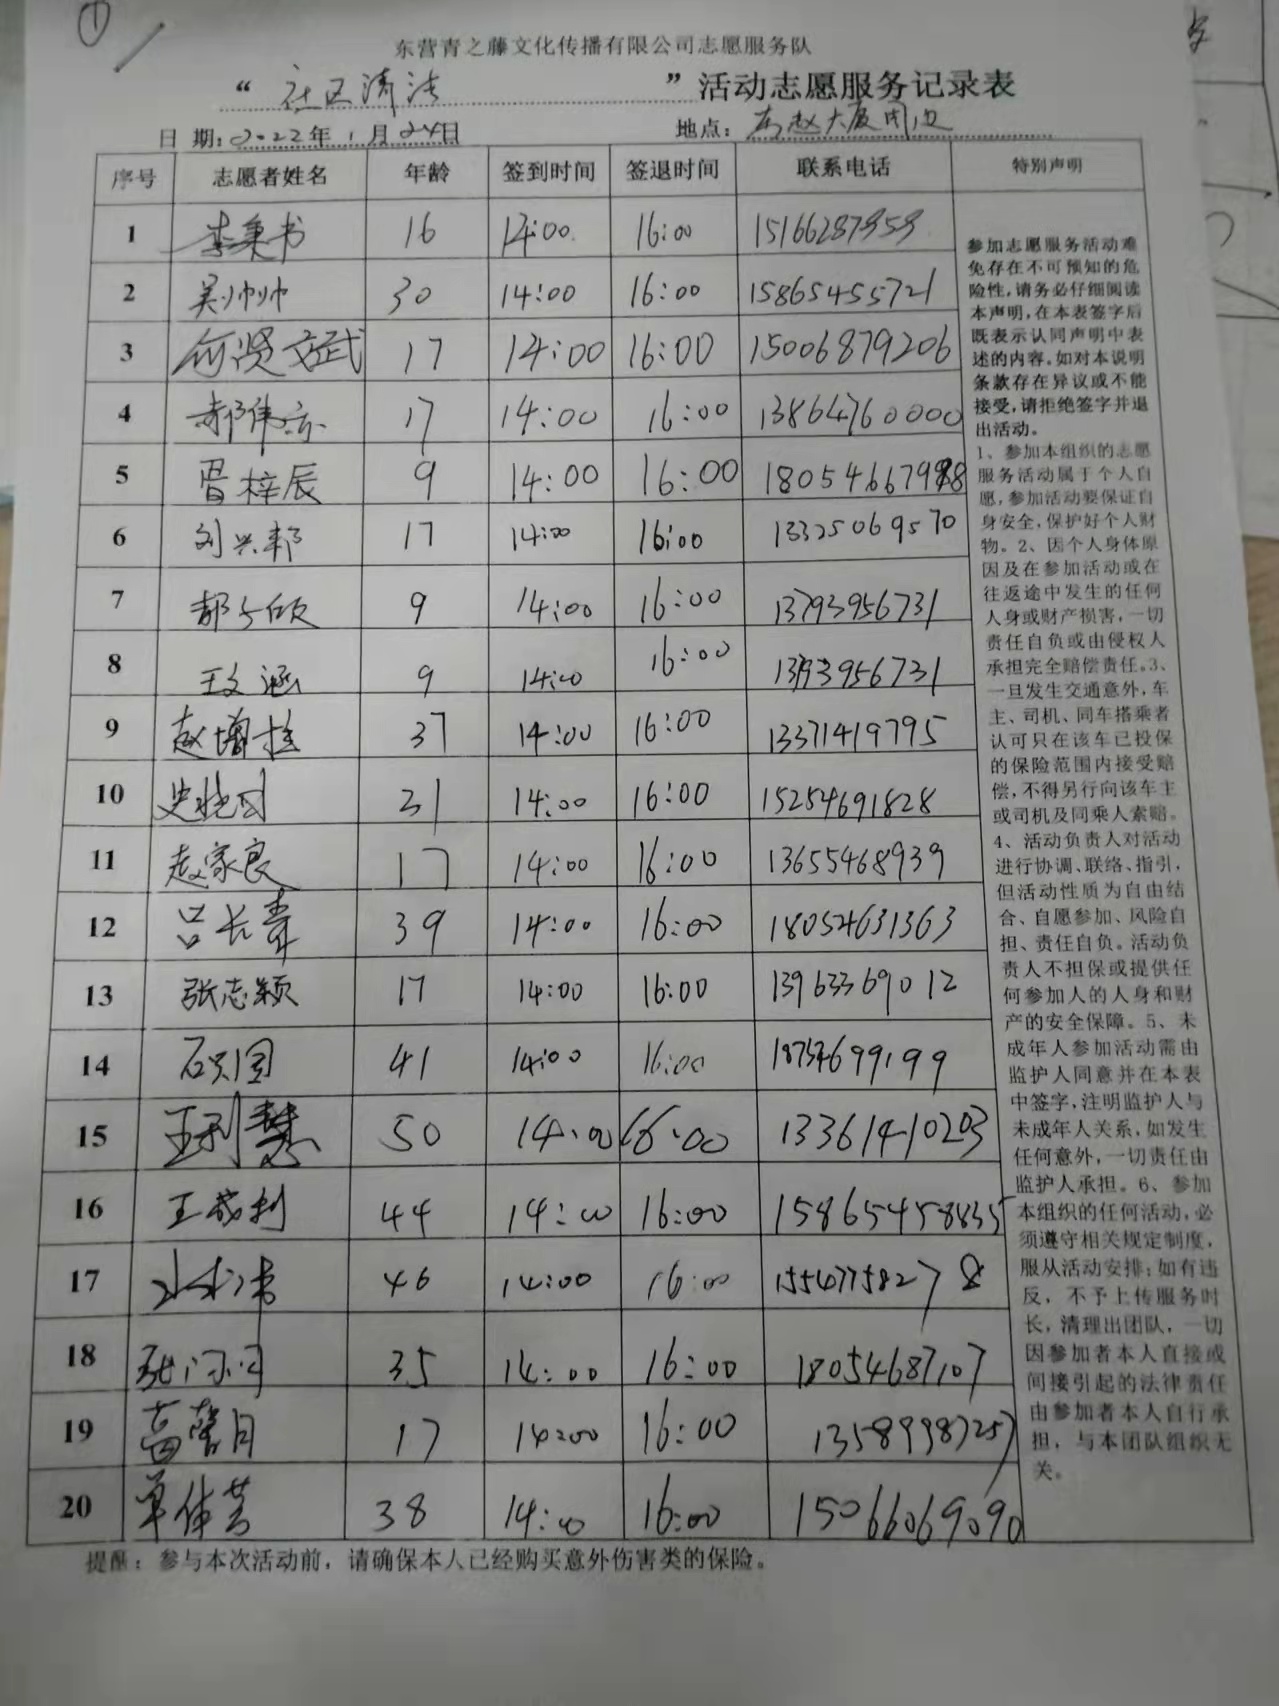 ①
东营青之藤文化传播有限公司志愿服务队
“社区清洁”活动志愿服务记录表
日期：2022年1月24日 地点：高赵大厦周边
序号 志愿者姓名 年龄 签到时间 签退时间 联系电话 特别声明
1 李秉书 16 14:00 16:00 15166287959
2 吴帅帅 30 14:00 16:00 15865455721
3 何贤文武 17 14:00 16:00 15006879206
4 郝伟 17 14:00 16:00 13864760000
5 梓辰 9 14:00 16:00 180546679
6 刘兴邦 17 14:00 16:00 13325069570
7 郝欣 9 14:00 16:00 13793956731
8 王文涵 9 14:00 16:00 13793956731
9 赵增 37 14:00 16:00 13371419795
10 史 31 14:00 16:00 15254691828
11 赵家良 17 14:00 16:00 13655468939
12 吕长青 39 14:00 16:00 18054631363
13 张志颖 17 14:00 16:00 13963369012
14 石兴国 41 14:00 16:00 18754699199
15 王利慧 50 14:00 16:00 13361410203
16 王利 44 14:00 16:00 15865458835
17 46 14:00 16:00 15547758278
18 张闪闪 35 14:00 16:00 18054687107
19 月 17 14:00 16:00 13589987257
20 单体芳 38 14:00 16:00 15066069090
参加志愿服务活动难
免存在不可预知的危
险性，请务必仔细阅读
本声明，在本表签字后
既表示认同声明中表
述的内容。如对本说明
条款存在异议或不能
接受，请拒绝签字并退
出活动。
1、参加本组织的志愿
服务活动属于个人自
愿，参加活动要保证自
身安全，保护好个人财
物。2、因个人身体原
因及在参加活动或在
往返途中发生的任何
人身或财产损害，一切
责任自负或由侵权人
承担完全赔偿责任。3、
一旦发生交通意外，车
主、司机、同车搭乘者
认可只在该车已投保
的保险范围内接受赔
偿，不得另行向该车主
或司机及同乘人索赔。
4、活动负责人对活动
进行协调、联络、指引，
但活动性质为自由结
合、自愿参加、风险自
担、责任自负。活动负
责人不担保或提供任
何参加人的人身和财
产的安全保障。5、未
成年人参加活动需由
监护人同意并在本表
中签字，注明监护人与
未成年人关系，如发生
任何意外，一切责任由
监护人承担。6、参加
本组织的任何活动，必
须遵守相关规定制度，
服从活动安排；如有违
反，不予上传服务时
长，清理出团队，一切
因参加者本人直接或
间接引起的法律责任
由参加者本人自行承
担，与本团队组织无
关。
提醒：参与本次活动前，请确保本人已经购买意外伤害类的保险。